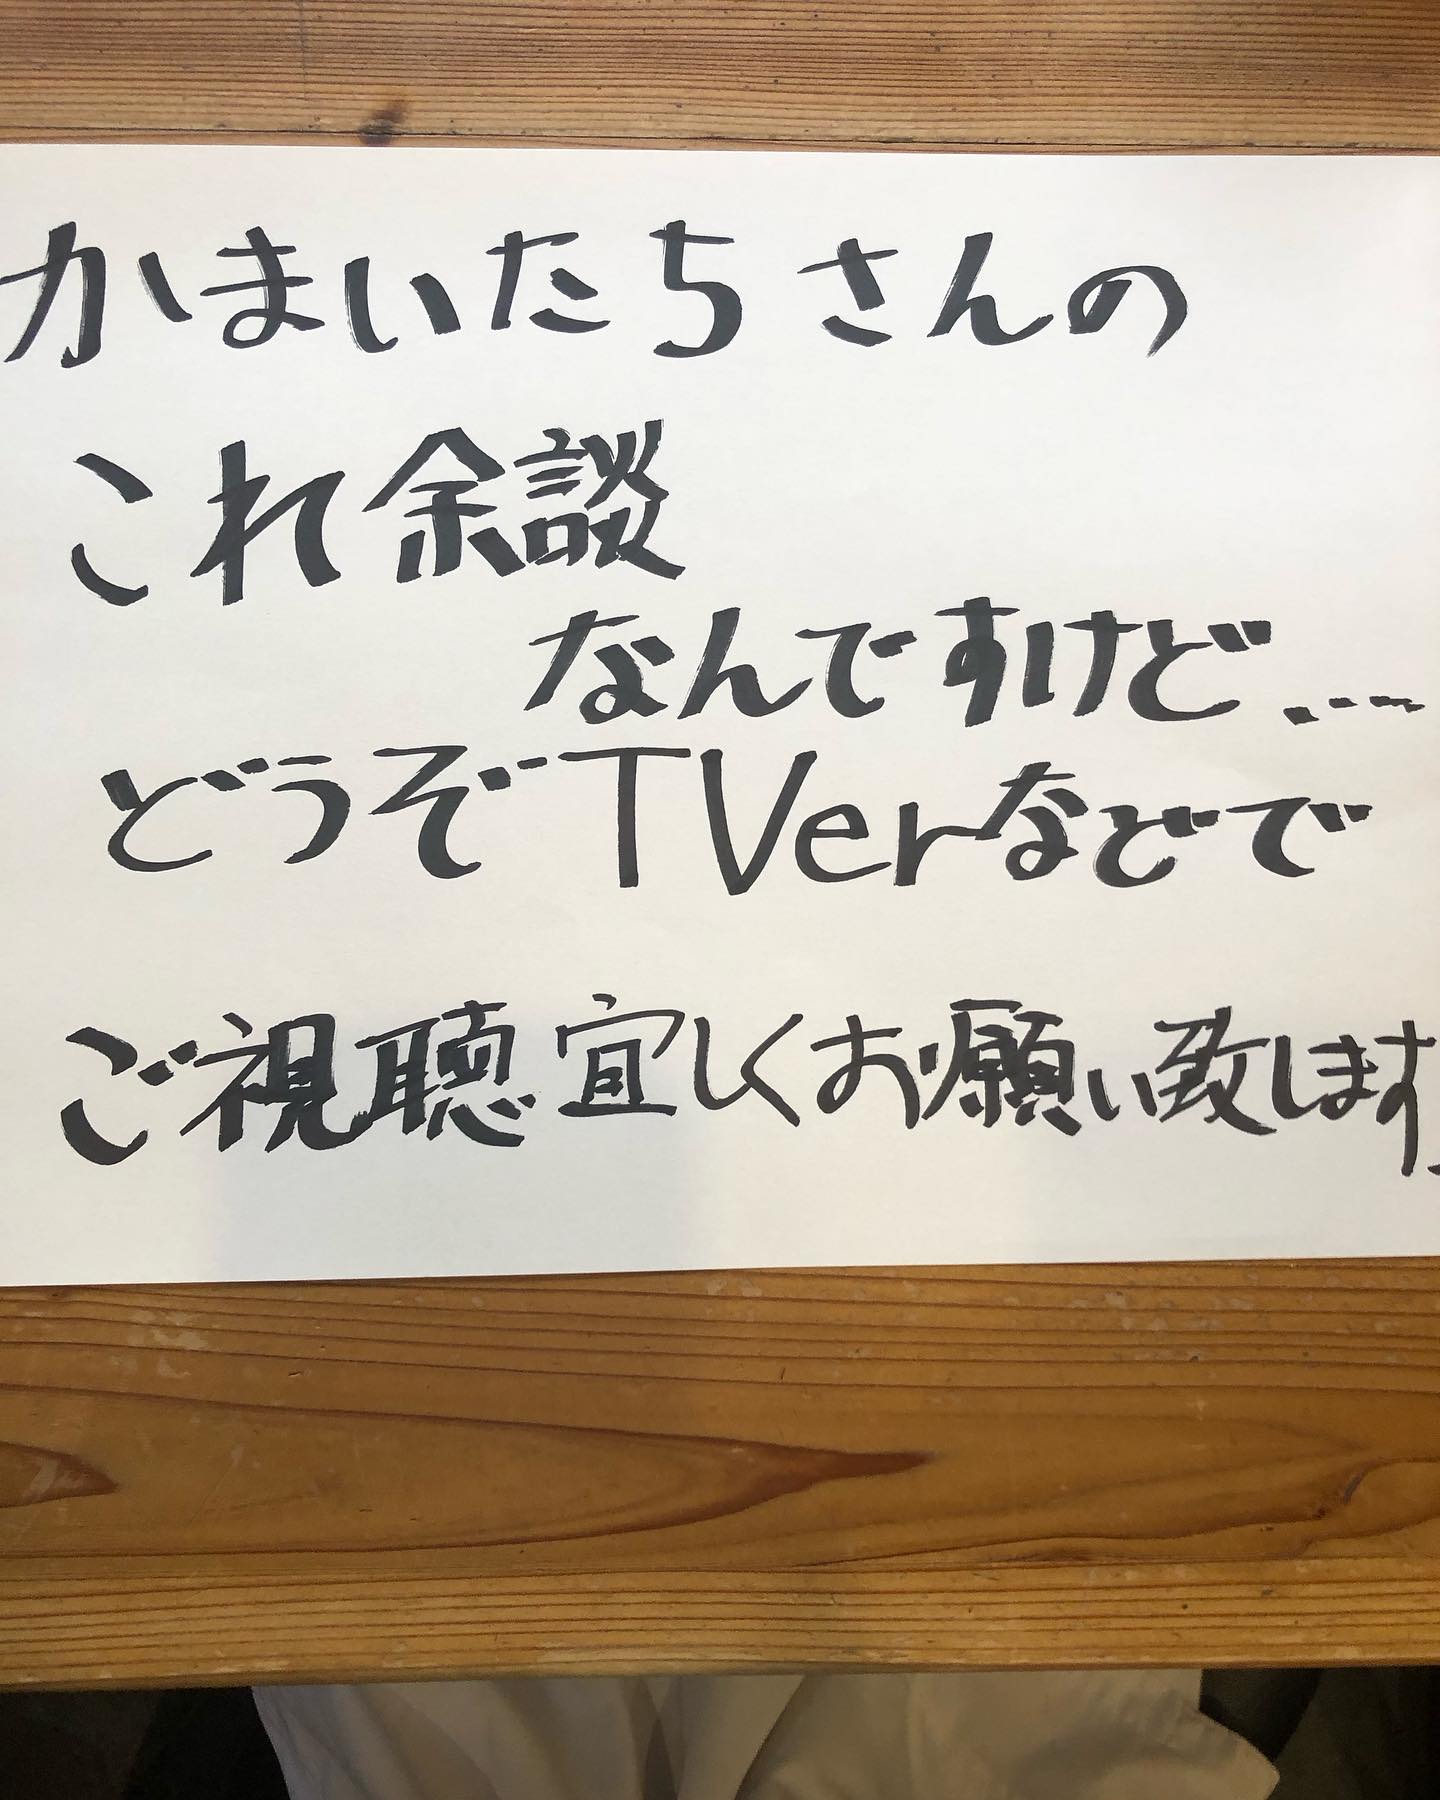 かまいたちさんの
これ余談
なんですけど....
どうぞTVerなどで
ご視聴宜しくお願い致します